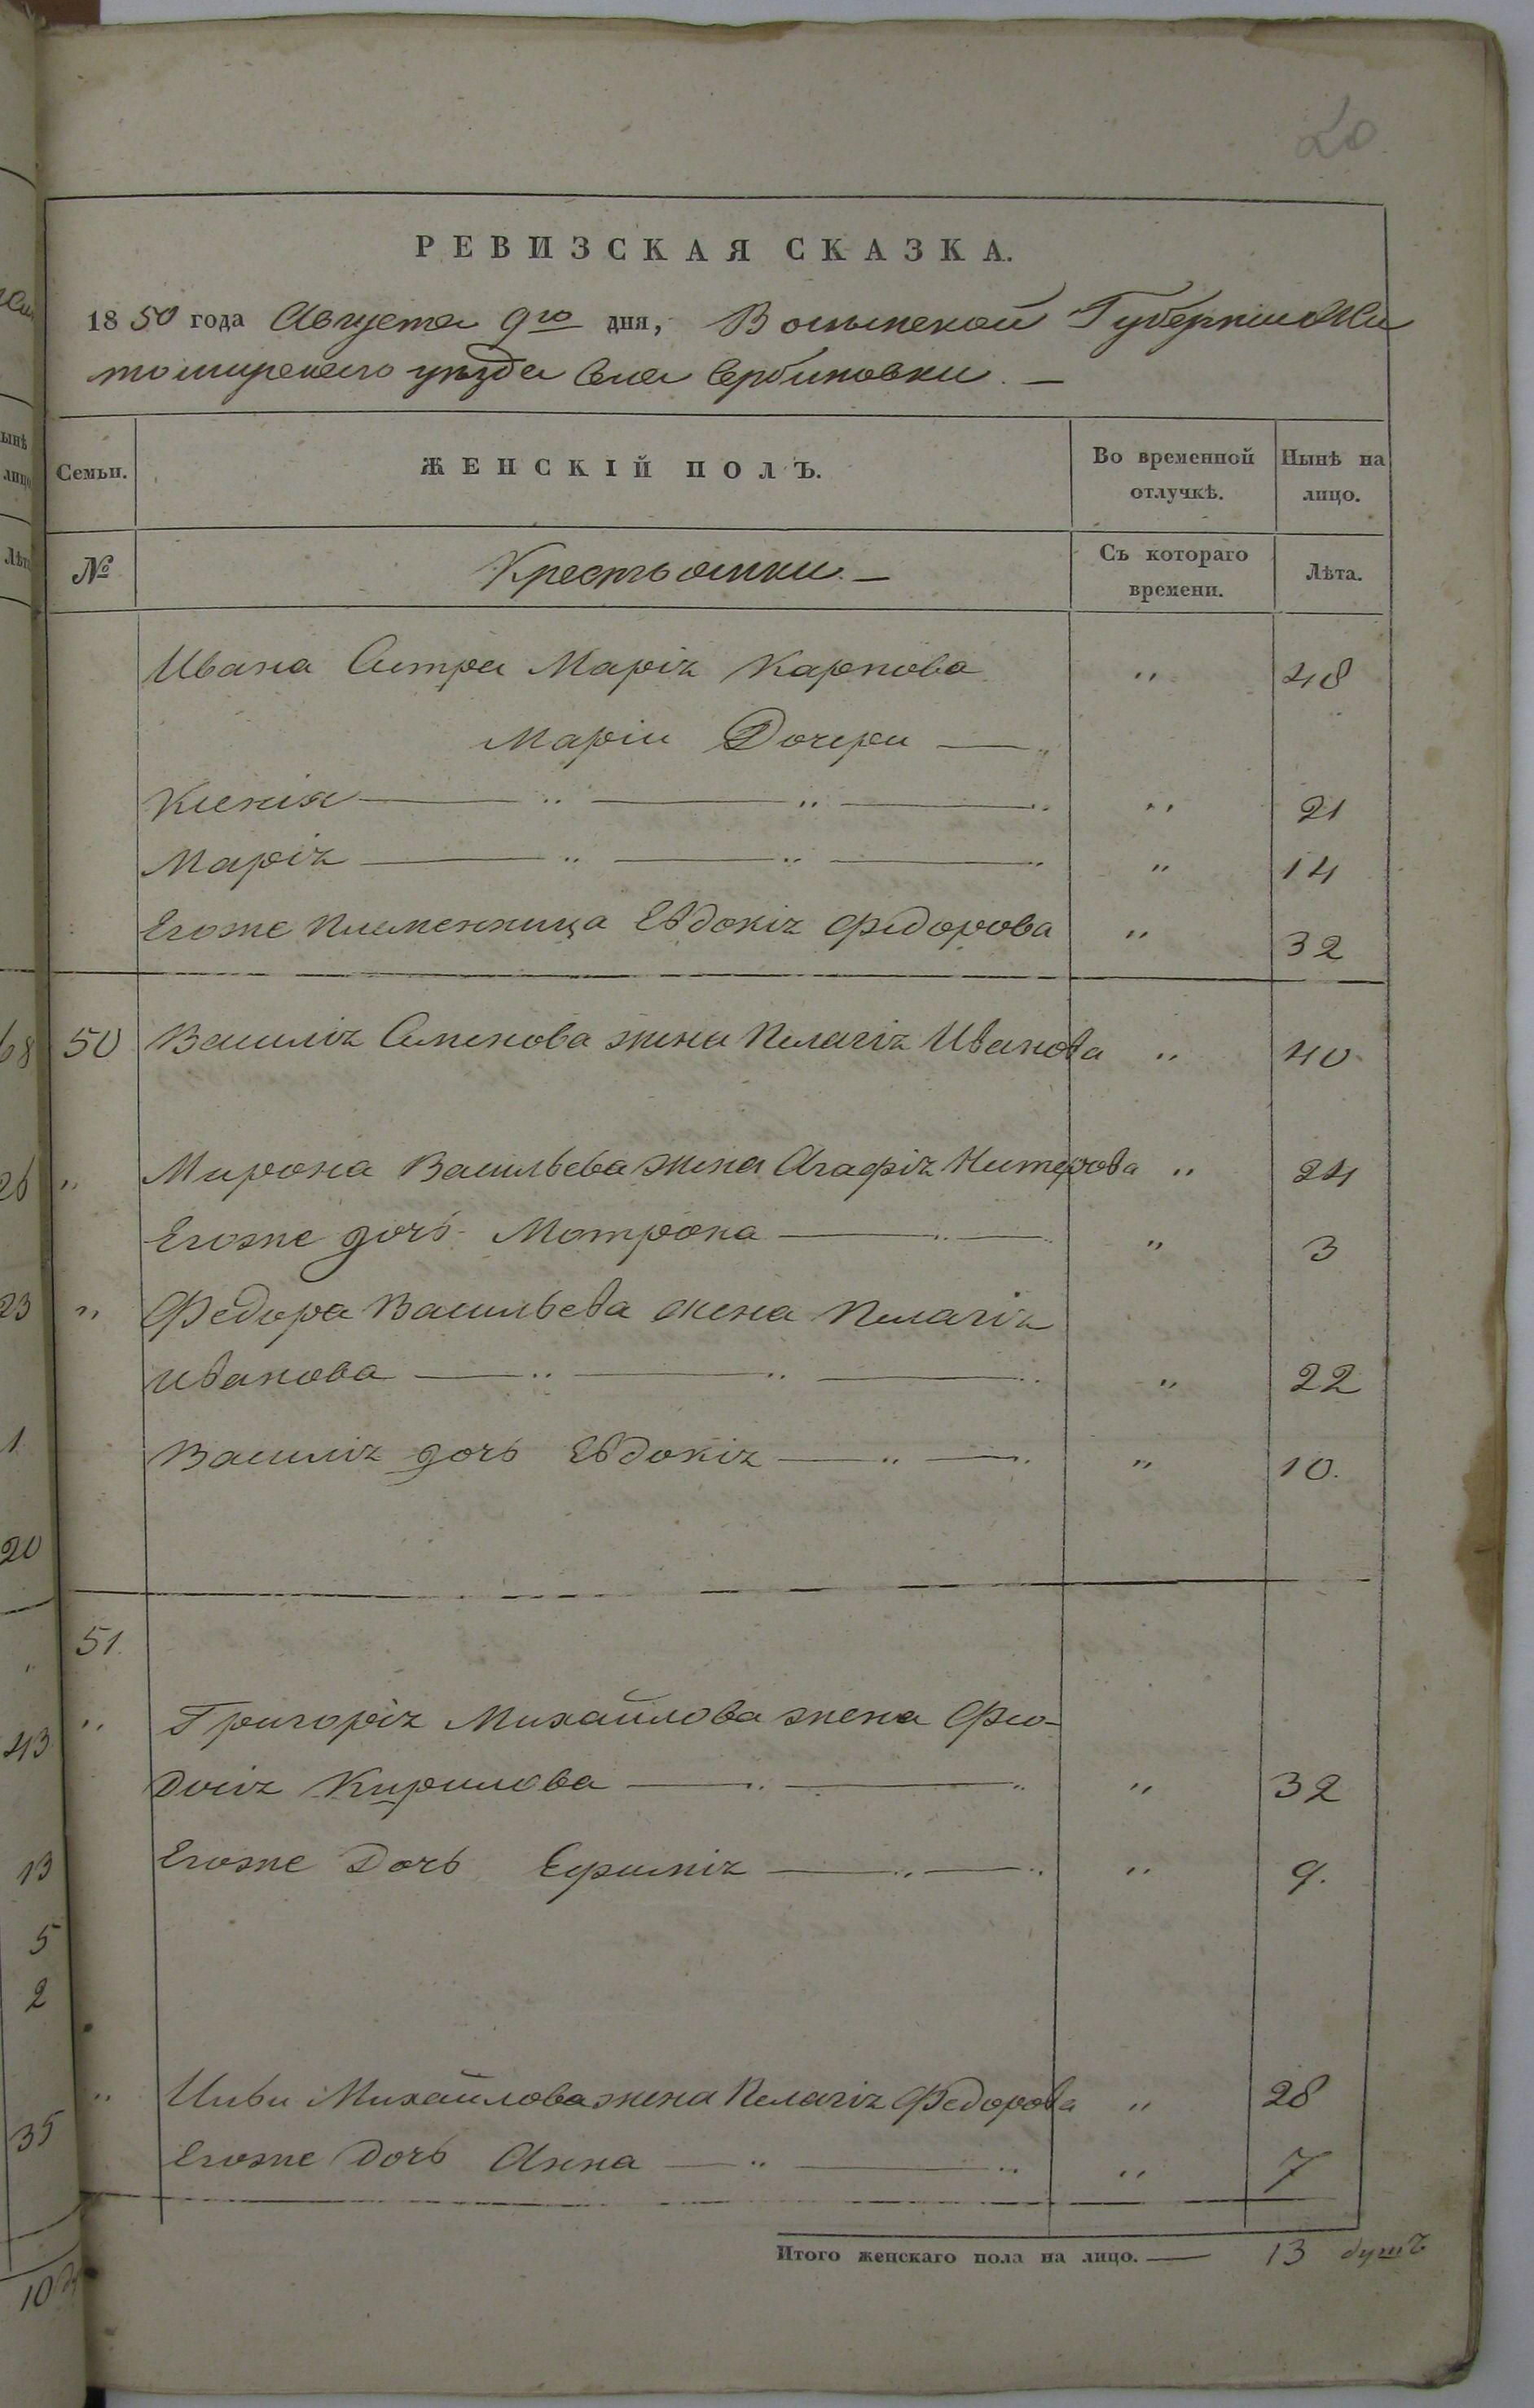 20
РЕВИЗСКАЯ СКАЗКА.
1850 года Августа 9го дня, Волынской Губерніи Жи
томирскаго уѣзда Села Сербиновки. —
Семьи. ЖЕНСКІЙ ПОЛЪ. Во временной отлучкѣ. Нынѣ на лицо.
№ Крестьянки. — Съ котораго времени. Лѣта.
Ивана Сестра Марія Карпова " 48
Маріи Дочери — "
Ксенія — " — " — " " 21
Марія — " — " — " " 14
Егоже племенница Евдокія Федорова " 32
50 Василія Семенова жена Пелагія Иванова " 40
" Мирона Васильева жена Агафія Нитерова " 24
Егоже дочь Мотрона — " — " 3
" Федора Васильева жена Пелагія
Иванова — " — " — " " 22
Василія дочь Евдокія — " — " " 10.
51.
" Григорія Михайлова жена Фео-
досія Кирилова — " — " " 32
Егоже Дочь — " — " " 9.
" Ильи Михайлова жена Пелагія Федорова " 28
Егоже Дочь Анна — " — " " 7
Итого женскаго пола на лицо. — 13 душъ